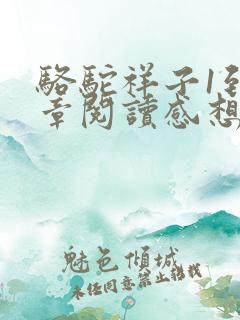 駱駝祥子1至
章閱讀感想
魅色傾城
未任同意禁止轉載